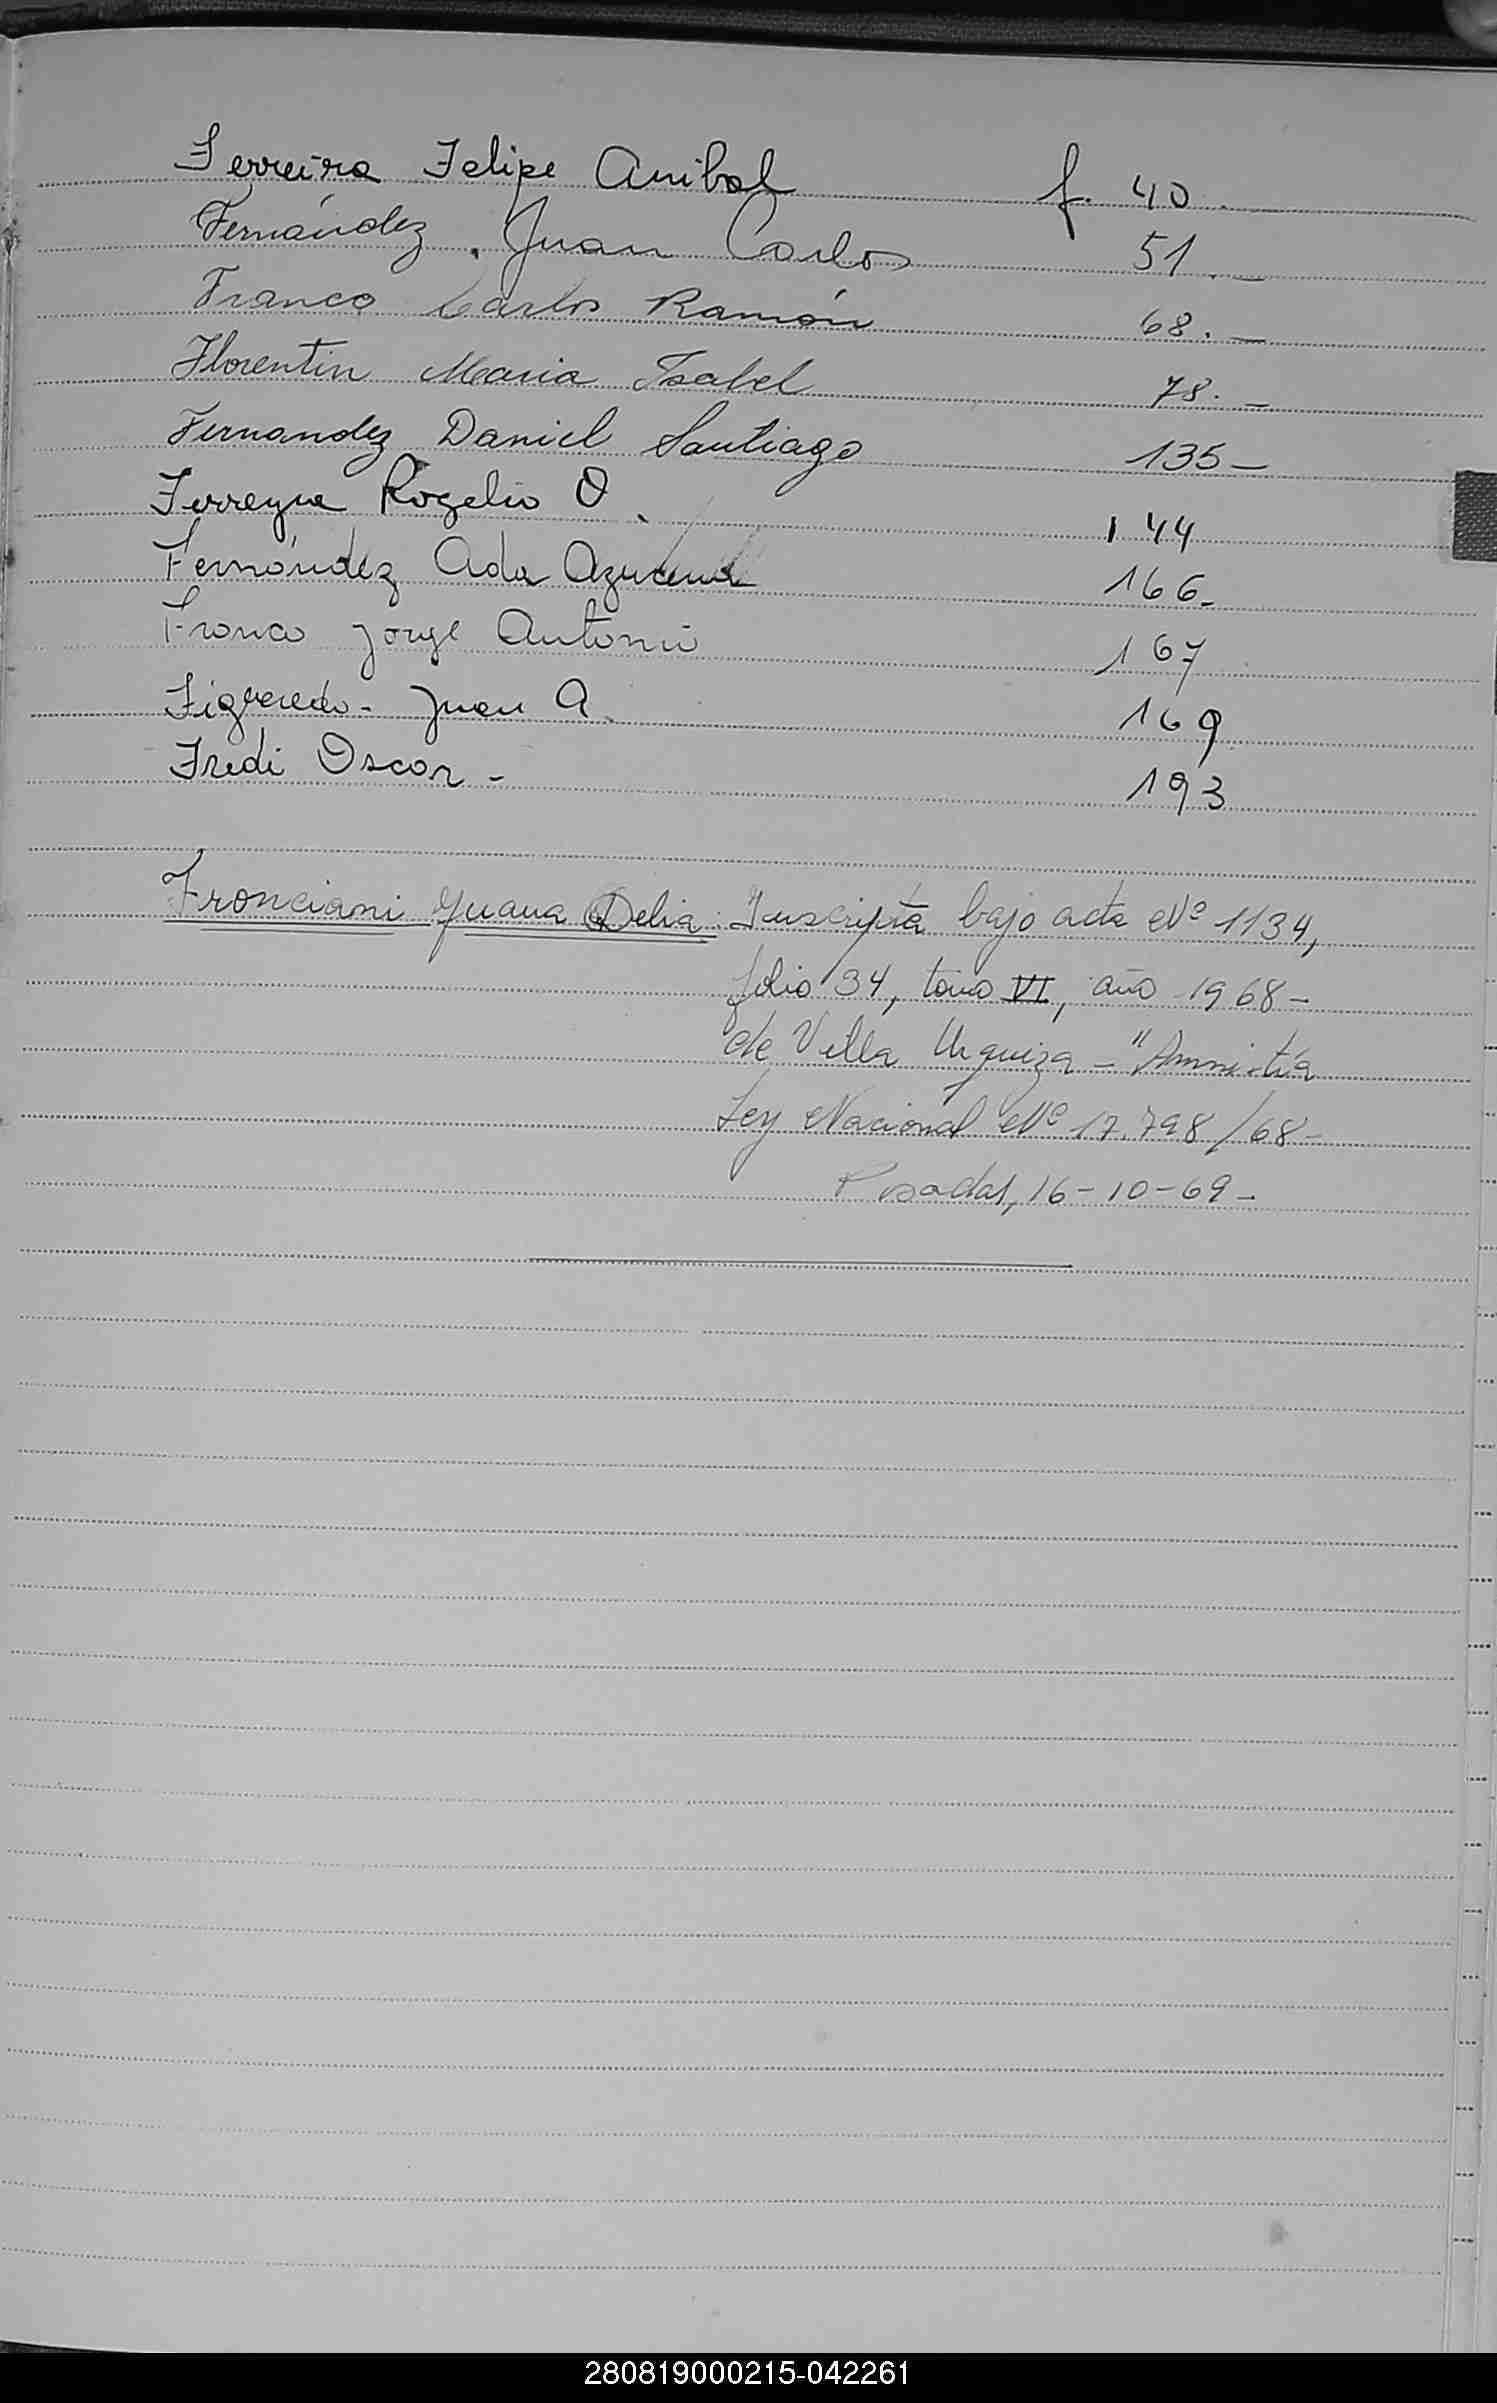 Ferreira Felipe Anibal f. 40.
Fernández, Juan Carlos 51.—
Franco Carlos Ramón 68.—
Florentin Maria Isabel 78.—
Fernandez Daniel Santiago 135—
Ferreyra Rogelio O. 144
Fernández Ada Azucena 166-
Franco Jorge Antonio 167
Figueredo - Juan A. 169
Fredi Oscar - 193
Franciani Juana Delia: Inscripta bajo acta Nº 1134,
folio 34, tomo VI, año 1968-
de Villa Urquiza - "Amnistía
Ley Nacional Nº 17.798/68-
Posadas, 16-10-69-
280819000215-042261